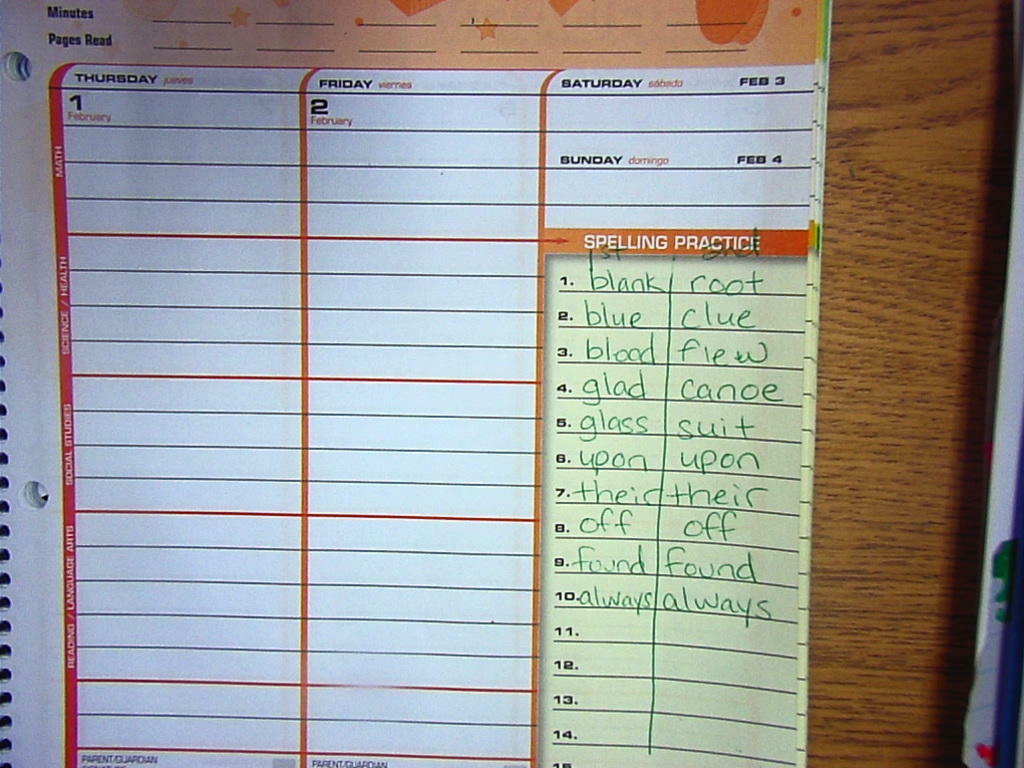 Minutes
Pages Read
THURSDAY jueves
FRIDAY viernes
SATURDAY sábado FEB 3
1
February
2
February
SUNDAY domingo FEB 4
MATH
SCIENCE / HEALTH
SOCIAL STUDIES
READING / LANGUAGE ARTS
SPELLING PRACTICE
1st 2nd
1. blank root
2. blue clue
3. blood flew
4. glad canoe
5. glass suit
6. upon upon
7. their their
8. off off
9. found found
10. always always
11.
12.
13.
14.
15
PARENT/GUARDIAN
PARENT/GUARDIAN